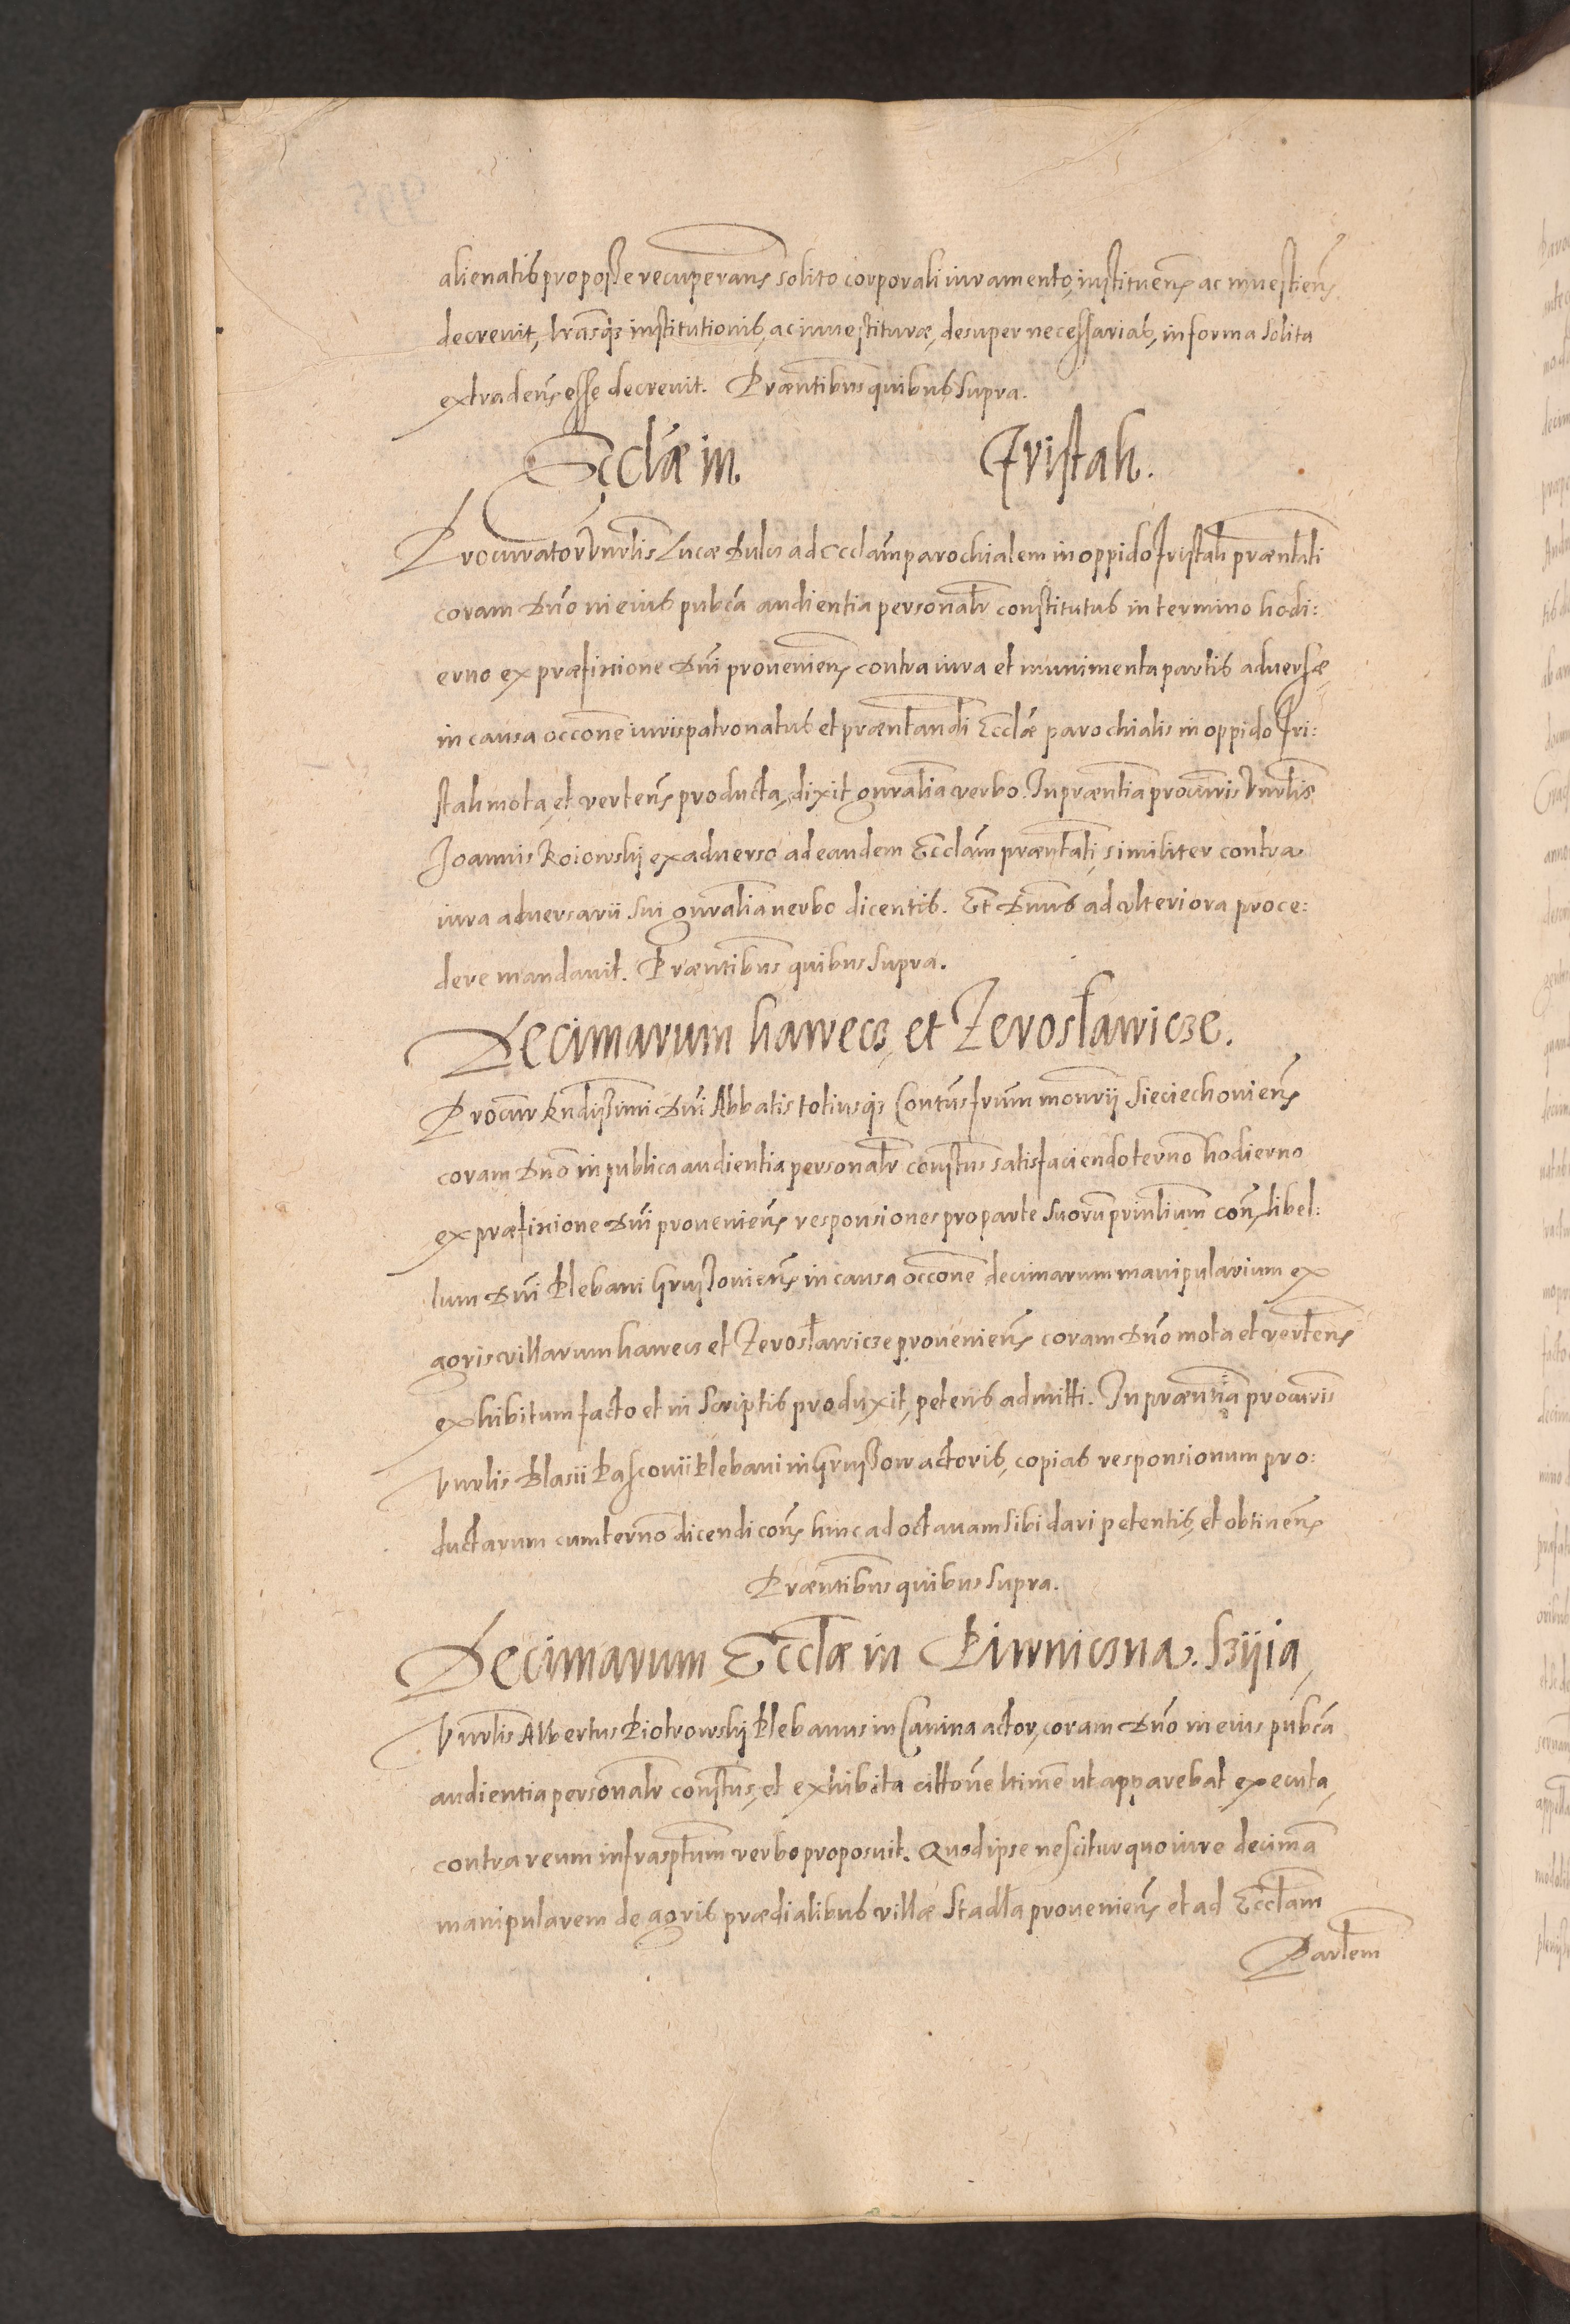 alienatis pro posse recuperans solito corporali iuramento, instituens ac inuestiens
decreuit, lrasq; institutionis, ac inuestituræ, desuper necessarias, in forma solita
extradens esse decreuit. Præntibus quibus supra.
Ecclæ in Fristak.
Procurator Vnrlis Lucæ Dulcz ad Ecclam parochialem in oppido Fristak præntati
coram Dno in eius pubca audientia personalr constitutus in termino hodi:
erno ex præfinione Dni proueniens contra iura et munimenta partis aduersæ,
in causa occone iurispatronatus et præntandi Ecclæ parochialis in oppido Fri:
stak mota, et vertens producta, dixit gnralia verbo. In præntia procuris Vnrlis
Joannis Roiowskij ex aduerso ad eandem Ecclam præntati, similiter contra
iura aduersarii sui gnralia verbo dicentis. Et Dnus ad vlteriora proce:
dere mandauit. Præntibus quibus supra.
Decimarum hawecz, et Zerosławicze.
Procur Rndissimi Dni Abbatis totiusq; Contus frum monrij Sieciechouiens
coram Dno in publica audientia personalr constus satisfaciendo terno hodierno
ex præfinione Dni proueniens responsiones pro parte suorum prinlium cons libel:
lum Dni Plebani Gruszouiens in causa occone decimarum manipularium ex
agris villarum hawecz et Zerosławicze proueniens coram Dno mota et vertens
exhibitum facto et in scriptis produxit, petens admitti. In præntia procuris
Vnrlis Blasii Pasconii Plebani in Gruszow actoris, copias responsionum pro:
ductarum cum terno dicendi cons hinc ad octauam sibi dari petentis, et obtinens
Præntibus quibus supra.
Decimarum Ecclæ in Piwniczna. Szyia,
Vnrlis Albertus Piotrowskij Plebanus in Canina actor, coram Dno in eius pubca
audientia personalr constus, et exhibita cittone ltime ut apparebat executa,
contra reum infrasptum verbo proposuit. Quod ipse nescitur quo iure decimã
manipularem de agris prædialibus villæ Stadla proueniens et ad Ecclam
Parlem